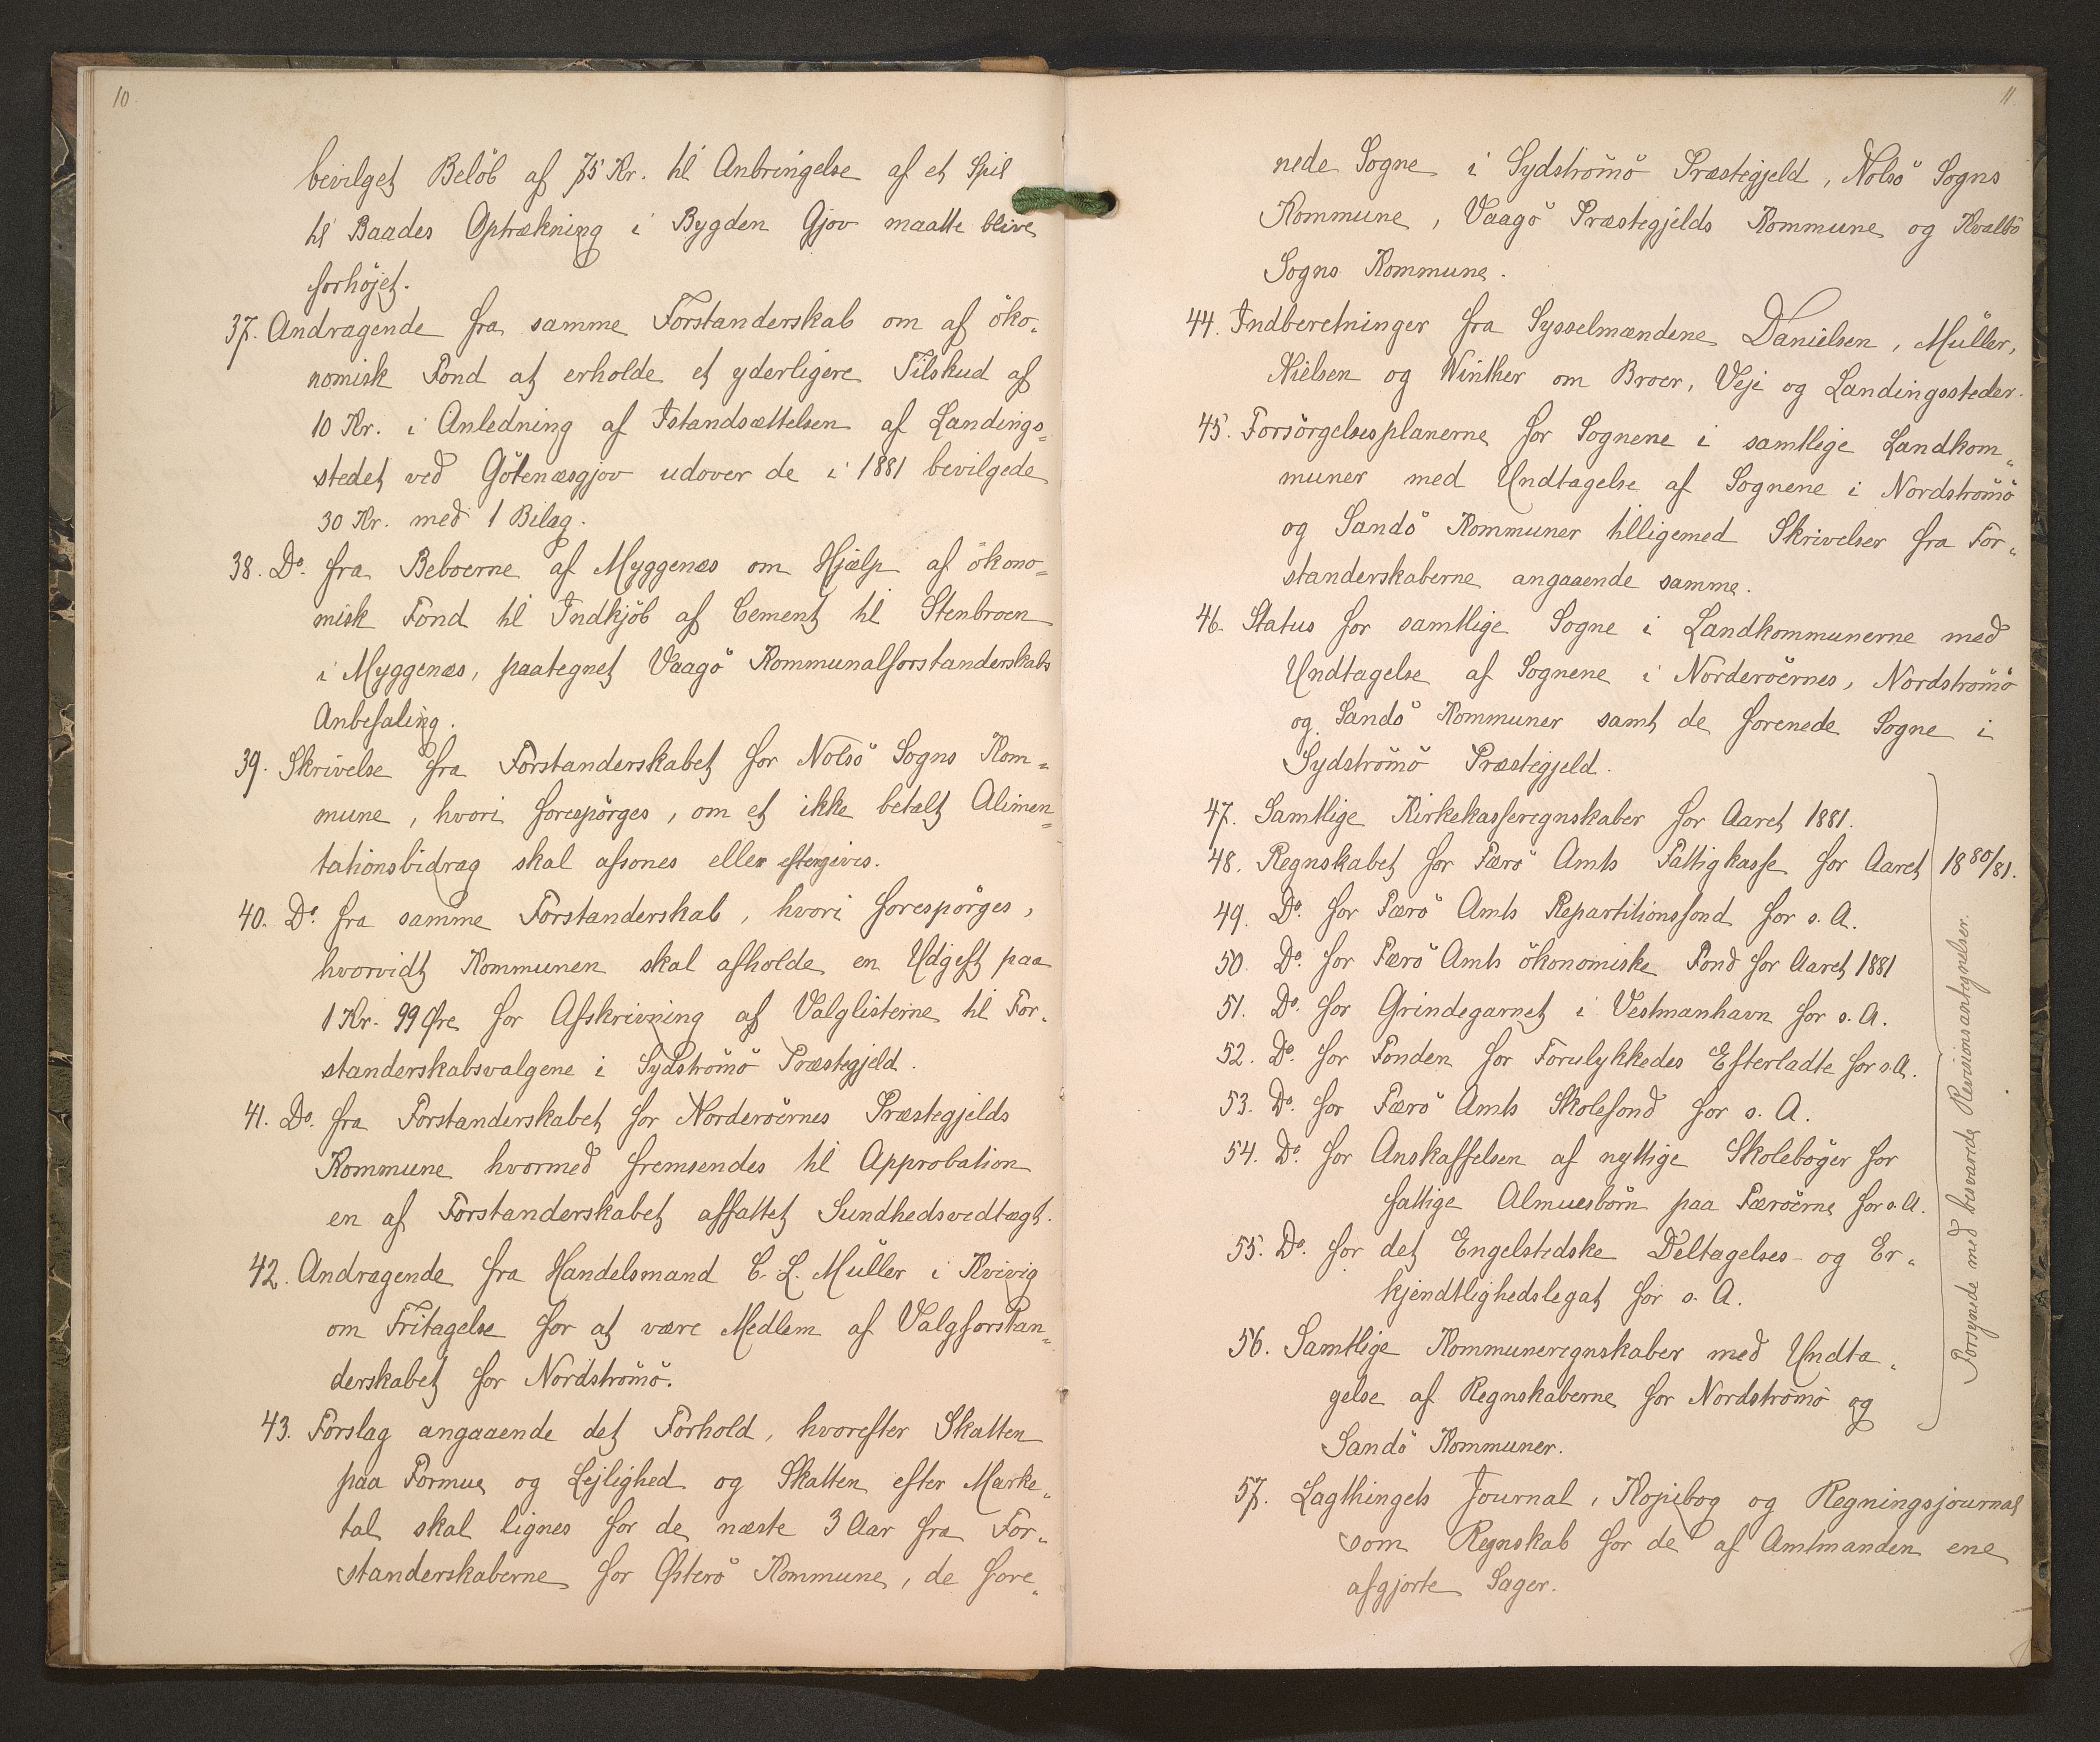 10
bevilget Belöb af 75 Kr. til Anbringelse af et Spil
til Baades Optrækning i Bygden Gjov maatte blive
forhöjet.
37. Andragende fra samme Forstanderskab om af öko-
nomisk Fond at erholde et yderligere Tilskud af
10 Kr. i Anledning af Istandsættelsen af Landings-
stedet ved Götenæsgjov udover de i 1881 bevilgede
30 Kr. med 1 Bilag.
38. Do. fra Beboerne af Myggenæs om Hjælp af ökono-
misk Fond til Indkjöb af Cement til Stenbroen
i Myggenæs, paategnet Vaagö Kommunalforstanderskabs
Anbefaling.
39. Skrivelse fra Forstanderskabet for Nolsö Sogns Kom-
mune, hvori forespörges, om et ikke betalt Alimen-
tationsbidrag skal afsones eller eftergives.
40. Do. fra samme Forstanderskab, hvori forespörges,
hvorvidt Kommunen skal afholde en Udgift paa
1 Kr. 99 Øre for Afskrivning af Valglisterne til For-
standerskabsvalgene i Sydströmö Præstegjeld.
41. Do. fra Forstanderskabet for Norderöernes Præstegjelds
Kommune hvormed fremsendes til Approbation
en af Forstanderskabet affattet Sundhedsvedtægt.
42. Andragende fra Handelsmand C. L. Müller i Kvivig
om Fritagelse for at være Medlem af Valgforstan-
derskabet for Nordströmö.
43. Forslag angaaende det Forhold, hvorefter Skatten
paa Formue og Lejlighed og Skatten efter Marke-
tal skal lignes for de næste 3 Aar fra For-
standerskaberne for Østerö Kommune, de fore-
11
nede Sogne i Sydströmö Præstegjeld, Nolsö Sogns
Kommune, Vaagö Præstegjelds Kommune og Kvalbö
Sogns Kommune.
44. Indberetninger fra Sysselmændene Danielsen, Müller,
Nielsen og Winther om Broer, Veje og Landingssteder.
45. Forsörgelsesplanerne for Sognene i samtlige Landkom-
muner med Undtagelse af Sognene i Nordströmö
og Sandö Kommuner tilligemed Skrivelser fra For-
standerskaberne angaaende samme.
46. Status for samtlige Sogne i Landkommunerne med
Undtagelse af Sognene i Norderöernes, Nordströmö
og Sandö Kommuner samt de forenede Sogne i
Sydströmö Præstegjeld.
47. Samtlige Kirkekasseregnskaber for Aaret 1881.
48. Regnskabet for Færö Amts Fattigkasse for Aaret 1880/81.
49. Do. for Færö Amts Repartitionsfond for s. A.
50. Do. for Færö Amts ökonomiske Fond for Aaret 1881
51. Do. for Grindegarnet i Vestmanhavn for s. A.
52. Do. for Fonden for Forulykkedes Efterladte for s. A.
53. Do. for Færö Amts Skolefond for s. A.
54. Do. for Anskaffelsen af nyttige Skoleböger for
fattige Almuesbörn paa Færöerne for s. A.
55. Do. for det Engelstedske Deltagelses- og Er-
kjendtlighedslegat for s. A.
56. Samtlige Kommuneregnskaber med Undta-
gelse af Regnskaberne for Nordströmö og
Sandö Kommuner.
Forsynede med besvarede Revisionsantegnelser.
57. Lagthingets Journal, Kopibog og Regningsjournal
som Regnskab for de af Amtmanden ene
afgjorte Sager.